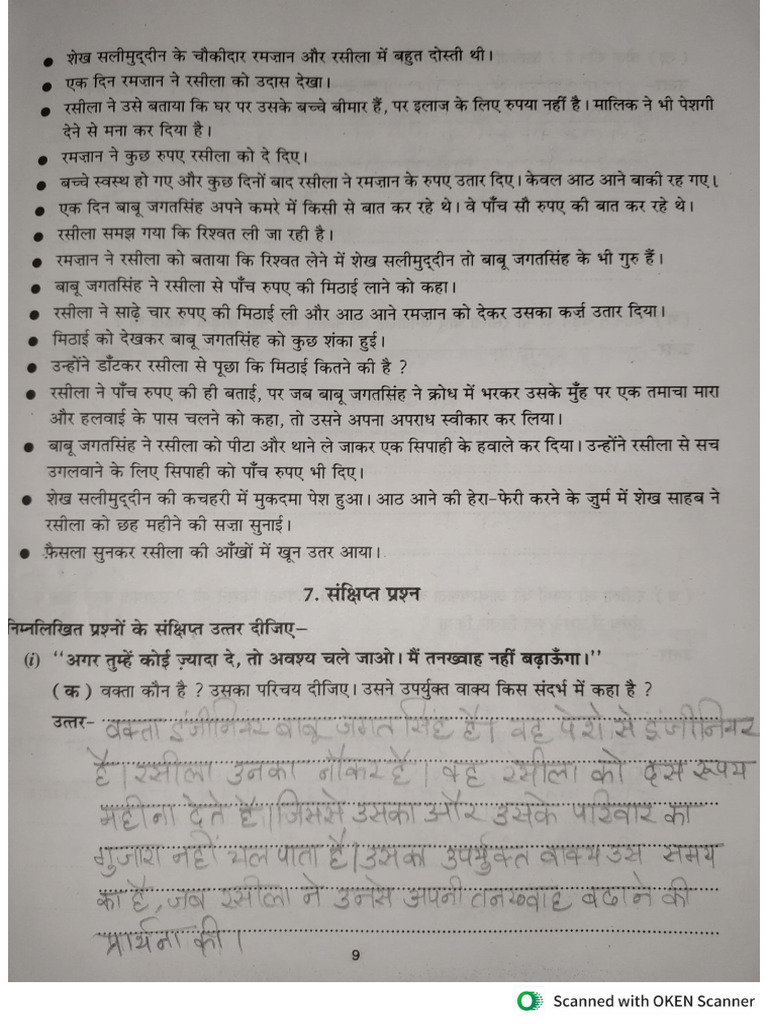 ● शेख सलीमुद्दीन के चौकीदार रमज़ान और रसीला में बहुत दोस्ती थी।
● एक दिन रमज़ान ने रसीला को उदास देखा।
● रसीला ने उसे बताया कि घर पर उसके बच्चे बीमार हैं, पर इलाज के लिए रुपया नहीं है। मालिक ने भी पेशगी
देने से मना कर दिया है।
● रमज़ान ने कुछ रुपए रसीला को दे दिए।
● बच्चे स्वस्थ हो गए और कुछ दिनों बाद रसीला ने रमज़ान के रुपए उतार दिए। केवल आठ आने बाकी रह गए।
● एक दिन बाबू जगतसिंह अपने कमरे में किसी से बात कर रहे थे। वे पाँच सौ रुपए की बात कर रहे थे।
● रसीला समझ गया कि रिश्वत ली जा रही है।
● रमज़ान ने रसीला को बताया कि रिश्वत लेने में शेख सलीमुद्दीन तो बाबू जगतसिंह के भी गुरु हैं।
● बाबू जगतसिंह ने रसीला से पाँच रुपए की मिठाई लाने को कहा।
● रसीला ने साढ़े चार रुपए की मिठाई ली और आठ आने रमज़ान को देकर उसका कर्ज़ उतार दिया।
● मिठाई को देखकर बाबू जगतसिंह को कुछ शंका हुई।
● उन्होंने डाँटकर रसीला से पूछा कि मिठाई कितने की है ?
● रसीला ने पाँच रुपए की ही बताई, पर जब बाबू जगतसिंह ने क्रोध में भरकर उसके मुँह पर एक तमाचा मारा
और हलवाई के पास चलने को कहा, तो उसने अपना अपराध स्वीकार कर लिया।
● बाबू जगतसिंह ने रसीला को पीटा और थाने ले जाकर एक सिपाही के हवाले कर दिया। उन्होंने रसीला से सच
उगलवाने के लिए सिपाही को पाँच रुपए भी दिए।
● शेख सलीमुद्दीन की कचहरी में मुकदमा पेश हुआ। आठ आने की हेरा-फेरी करने के जुर्म में शेख साहब ने
रसीला को छह महीने की सज़ा सुनाई।
● फ़ैसला सुनकर रसीला की आँखों में खून उतर आया।
7. संक्षिप्त प्रश्न
निम्नलिखित प्रश्नों के संक्षिप्त उत्तर दीजिए–
(i) "अगर तुम्हें कोई ज़्यादा दे, तो अवश्य चले जाओ। मैं तनख्वाह नहीं बढ़ाऊँगा।"
(क) वक्ता कौन है ? उसका परिचय दीजिए। उसने उपर्युक्त वाक्य किस संदर्भ में कहा है ?
उत्तर- वक्ता इंजीनियर बाबू जगत सिंह है। वह पेशे से इंजीनियर
है। रसीला उनका नौकर है। वह रसीला को दस रूपय
महीना देते है। जिससे उसका और उसके परिवार का
गुजारा नहीं चल पाता है। उसका उपर्युक्त वाक्य उस समय
का है, जब रसीला ने उनसे अपनी तनख्वाह बढाने की
प्रार्थना की।
9
Scanned with OKEN Scanner